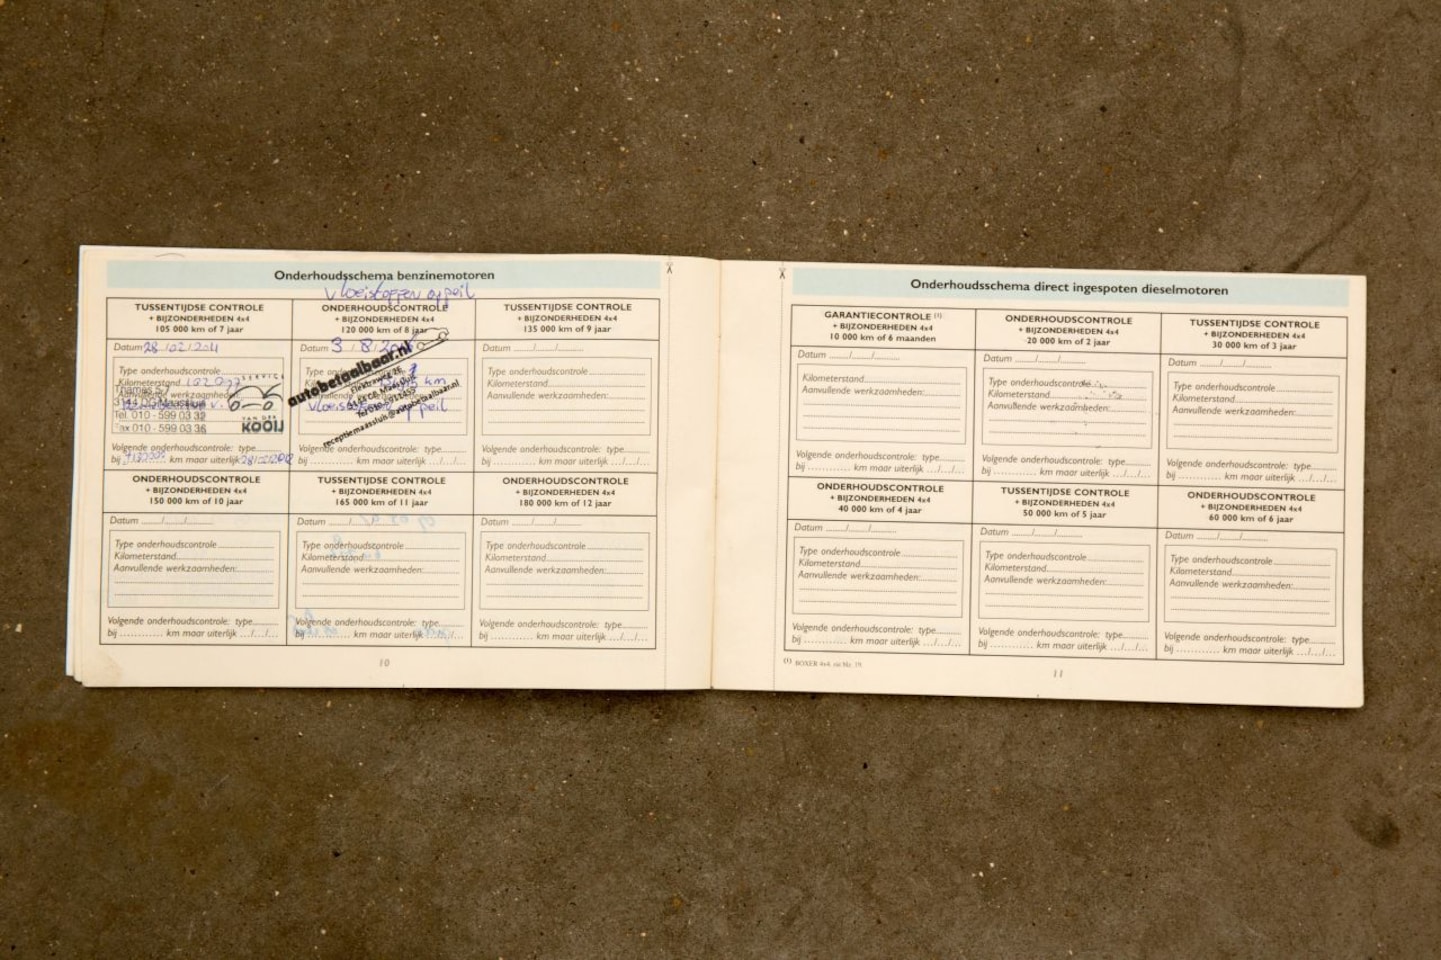 Onderhoudsschema benzinemotoren
vloeistoffen op peil
TUSSENTIJDSE CONTROLE
+ BIJZONDERHEDEN 4x4
105 000 km of 7 jaar
Datum 28/02/2011
Type onderhoudscontrole
Kilometerstand
Thames 5-7
3144 DD Maassluis
Tel. 010 - 599 03 32
Fax 010 - 599 03 36
SERVICE
VAN DER
KOOIJ
Volgende onderhoudscontrole: type
bij km maar uiterlijk
ONDERHOUDSCONTROLE
+ BIJZONDERHEDEN 4x4
120 000 km of 8 jaar
Datum 3/8/
autobetaalbaar.nl
Elektraweg
receptiemaassluis@autobetaalbaar.nl
km
vloeistoffen op peil
Volgende onderhoudscontrole: type
bij km maar uiterlijk .../.../...
TUSSENTIJDSE CONTROLE
+ BIJZONDERHEDEN 4x4
135 000 km of 9 jaar
Datum ....../....../..........
Type onderhoudscontrole
Kilometerstand
Aanvullende werkzaamheden:
Volgende onderhoudscontrole: type
bij km maar uiterlijk .../.../...
ONDERHOUDSCONTROLE
+ BIJZONDERHEDEN 4x4
150 000 km of 10 jaar
Datum ....../....../..........
Type onderhoudscontrole
Kilometerstand
Aanvullende werkzaamheden:
Volgende onderhoudscontrole: type
bij km maar uiterlijk .../.../...
TUSSENTIJDSE CONTROLE
+ BIJZONDERHEDEN 4x4
165 000 km of 11 jaar
Datum ....../....../
Type onderhoudscontrole
Kilometerstand
Aanvullende werkzaamheden:
Volgende onderhoudscontrole: type
bij km maar uiterlijk .../.../...
ONDERHOUDSCONTROLE
+ BIJZONDERHEDEN 4x4
180 000 km of 12 jaar
Datum ....../....../..........
Type onderhoudscontrole
Kilometerstand
Aanvullende werkzaamheden:
Volgende onderhoudscontrole: type
bij km maar uiterlijk .../.../...
10
Onderhoudsschema direct ingespoten dieselmotoren
GARANTIECONTROLE (1)
+ BIJZONDERHEDEN 4x4
10 000 km of 6 maanden
Datum ....../....../..........
Kilometerstand
Aanvullende werkzaamheden:
Volgende onderhoudscontrole: type
bij km maar uiterlijk .../.../...
ONDERHOUDSCONTROLE
+ BIJZONDERHEDEN 4x4
20 000 km of 2 jaar
Datum ....../....../..........
Type onderhoudscontrole
Kilometerstand
Aanvullende werkzaamheden:
Volgende onderhoudscontrole: type
bij km maar uiterlijk .../.../...
TUSSENTIJDSE CONTROLE
+ BIJZONDERHEDEN 4x4
30 000 km of 3 jaar
Datum ....../....../..........
Type onderhoudscontrole
Kilometerstand
Aanvullende werkzaamheden:
Volgende onderhoudscontrole: type
bij km maar uiterlijk .../.../...
ONDERHOUDSCONTROLE
+ BIJZONDERHEDEN 4x4
40 000 km of 4 jaar
Datum ....../....../..........
Type onderhoudscontrole
Kilometerstand
Aanvullende werkzaamheden:
Volgende onderhoudscontrole: type
bij km maar uiterlijk .../.../...
TUSSENTIJDSE CONTROLE
+ BIJZONDERHEDEN 4x4
50 000 km of 5 jaar
Datum ....../....../..........
Type onderhoudscontrole
Kilometerstand
Aanvullende werkzaamheden:
Volgende onderhoudscontrole: type
bij km maar uiterlijk .../.../...
ONDERHOUDSCONTROLE
+ BIJZONDERHEDEN 4x4
60 000 km of 6 jaar
Datum ....../....../..........
Type onderhoudscontrole
Kilometerstand
Aanvullende werkzaamheden:
Volgende onderhoudscontrole: type
bij km maar uiterlijk .../.../...
(1) BOXER 4x4, zie blz. 19.
11